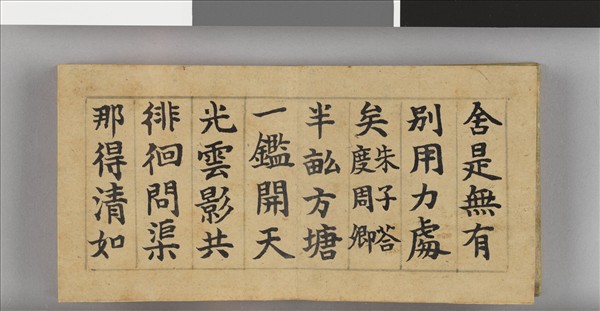 舍是無有
別用力處
矣朱子答
度周卿
半畝方塘
一鑑開天
光雲影共
徘徊問渠
那得清如